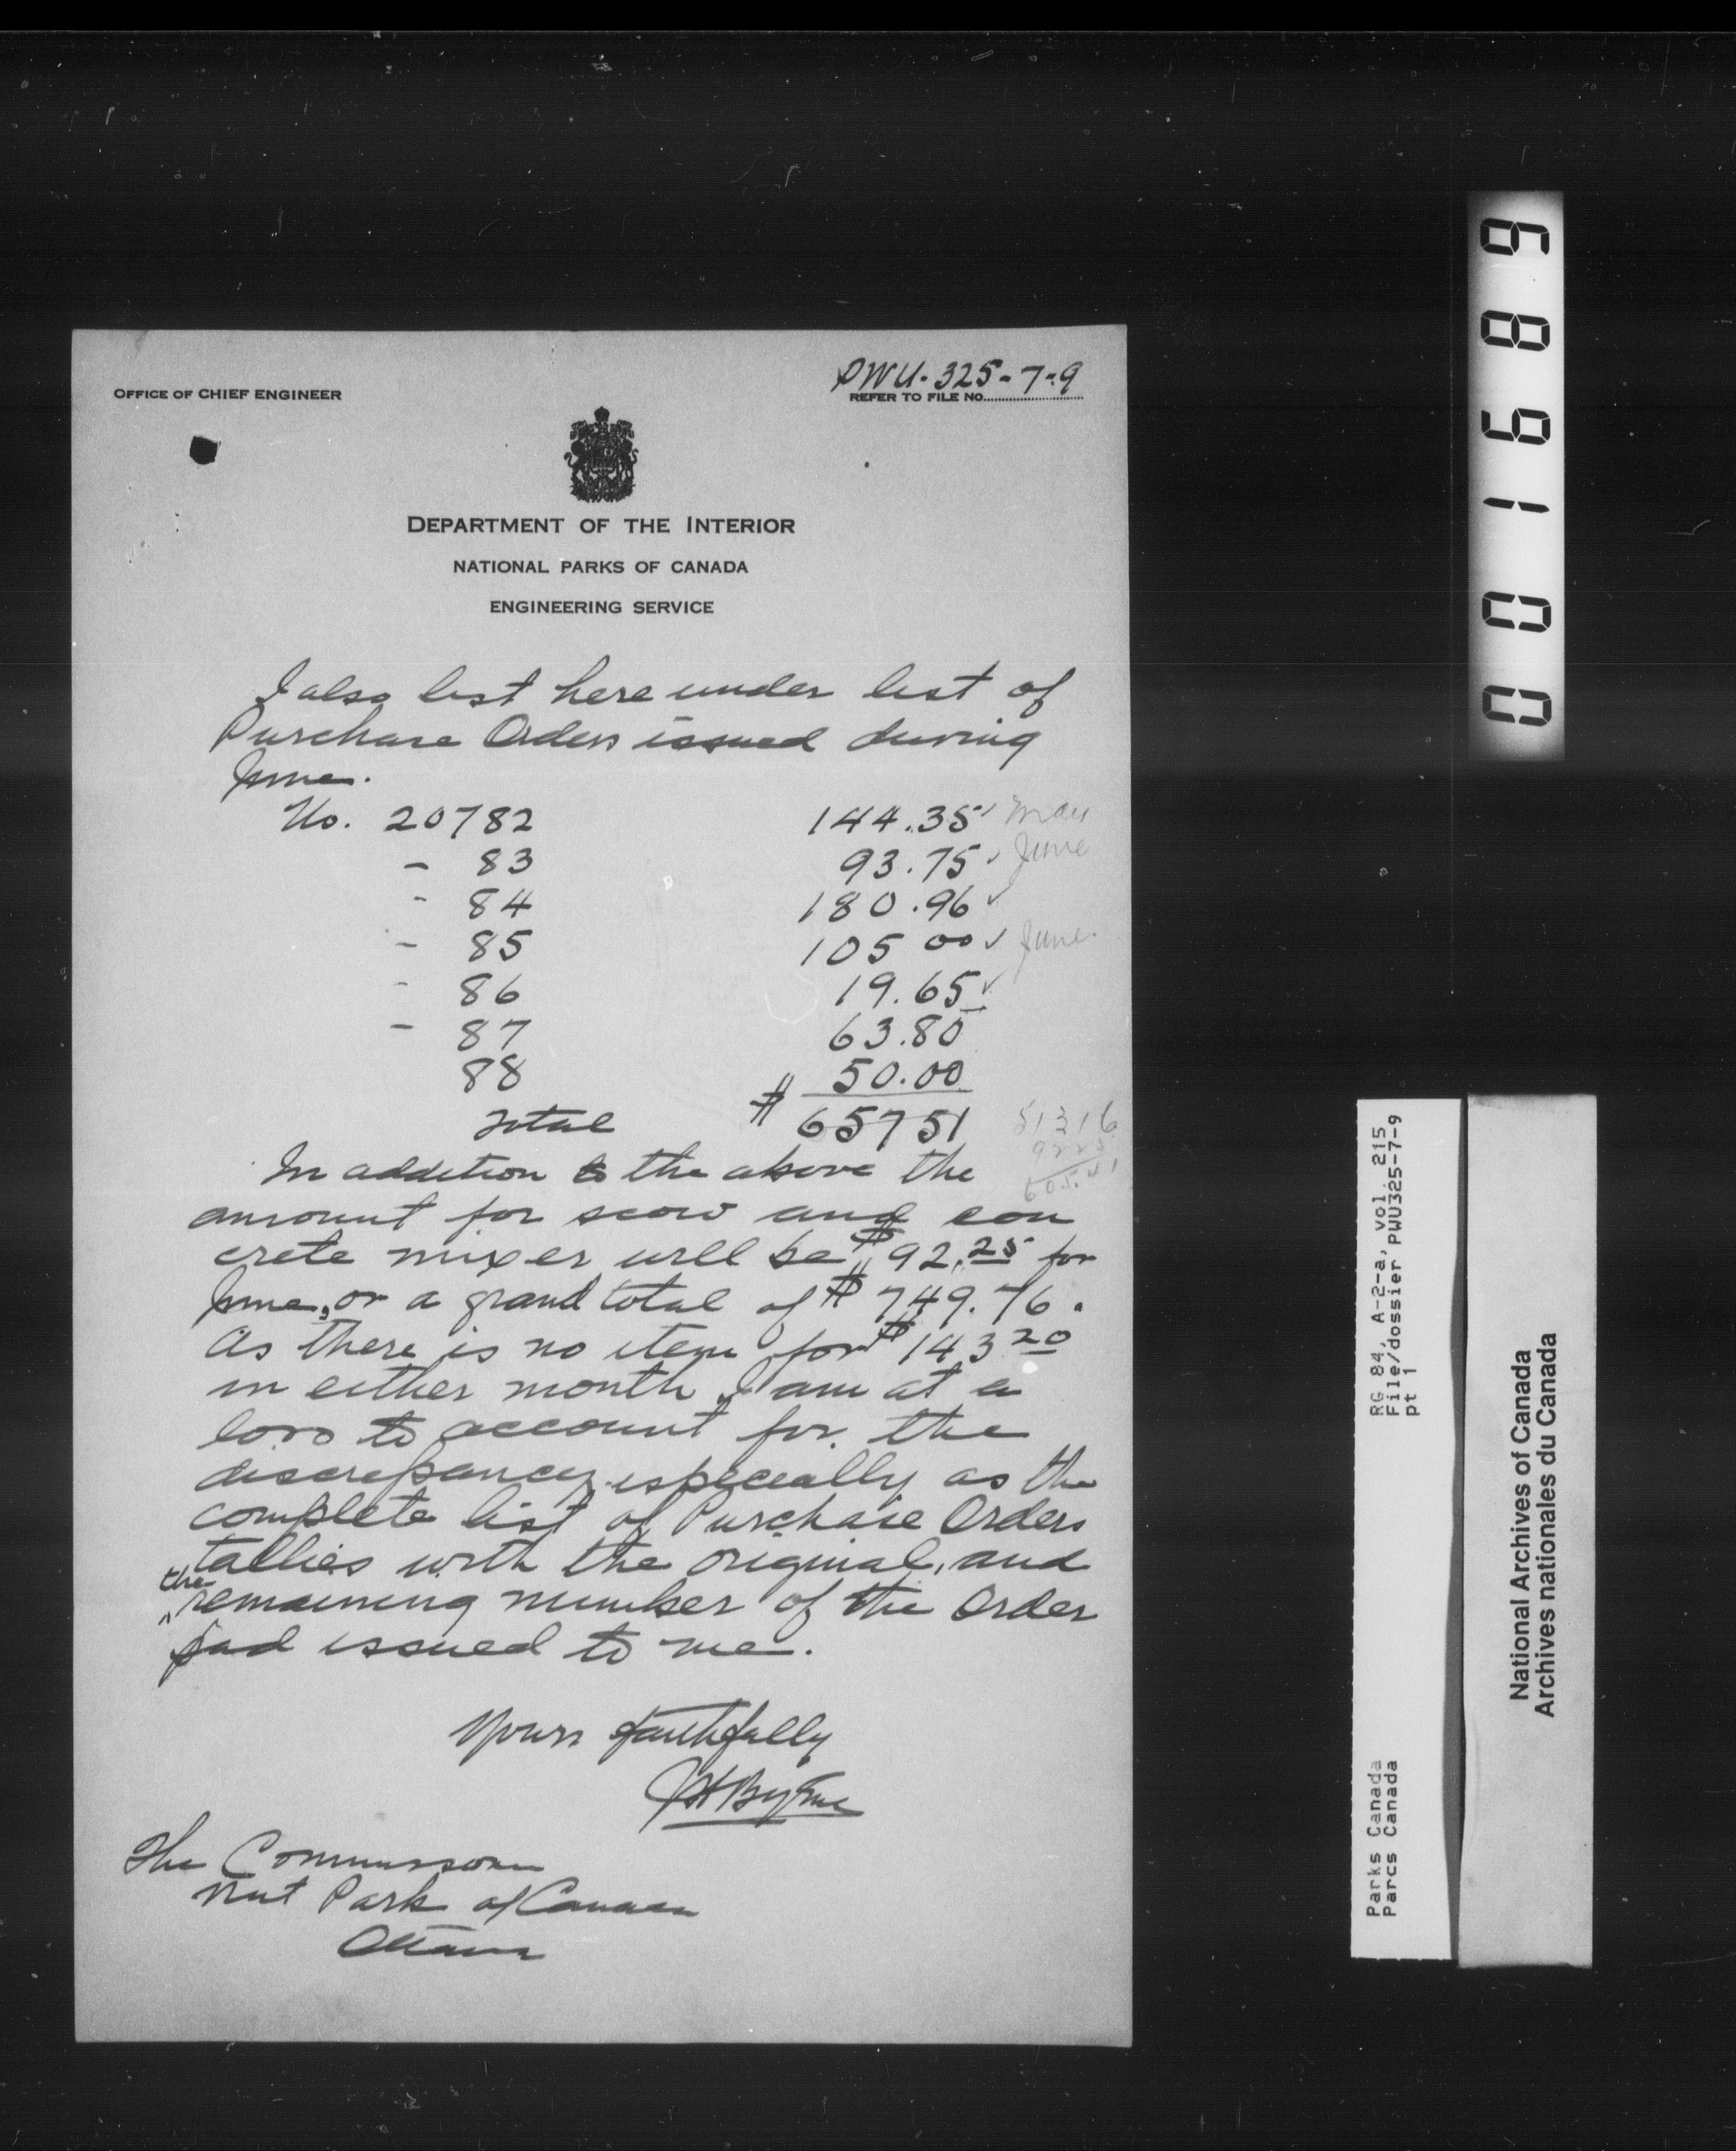 PWU-325-7-9
OFFICE OF CHIEF ENGINEER
REFER TO FILE No.
DEPARTMENT OF THE INTERIOR
NATIONAL PARKS OF CANADA
ENGINEERING SERVICE
I also list here under list of
Purchase Orders issued during
June.
No. 20782 144.35 ✓ May
- 83 93.75 ✓ June
- 84 180.96 ✓
- 85 105 00 ✓ June
- 86 19.65 ✓
- 87 63.80
88 50.00
Total $ 657 51
513 16
92 25
605.41
In addition to the above the
amount for scow and con
crete mixer will be $92.25 for
June, or a grand total of $749.76.
As there is no item for $143 20
in either month I am at a
loss to account for the
discrepancy especially as the
complete list of Purchase Orders
tallies with the original, and
the
remaining number of the Order
pad issued to me.
Yours faithfully
JHByrne
The Commissioner
Nat Park of Canada
Ottawa
001689
RG 84, A-2-a, vol. 215
File/dossier PWU325-7-9
pt 1
Parks Canada
Parcs Canada
National Archives of Canada
Archives nationales du Canada